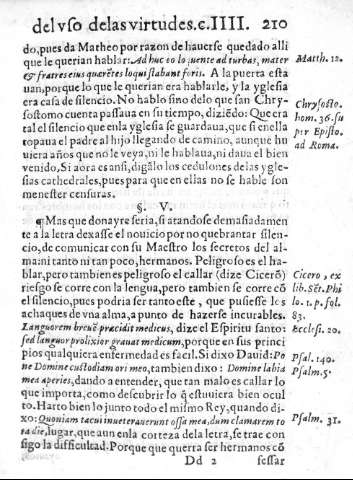 del vso delas virtudes.c.IIII. 210
do, pues da Matheo por razon de hauerse quedado alli
que le querian hablar: Ad huc eo loquente ad turbas, mater
& fratres eius querētes loqui stabant foris. A la puerta esta
uan, por que lo que le querian era hablarle, y la yglesia
era casa de silencio. No hablo sino delo que san Chry-
sostomo cuenta passaua en su tiempo, diziēdo: Que era
tal el silencio que enla yglesia se guardaua, que si enella
topaua el padre al hijo llegando de camino, aunque hu
uiera años que no le veya, ni le hablaua, ni daua el bien
venido, Si aora es ansi, digālo los cedulones de las ygle-
sias cathedrales, pues para que en ellas no se hable son
menester censuras.
Matth. 12.
Chrysosto.
hom. 36. su
per Epist.
ad Roma.
§. V.
¶ Mas que donayre seria, si atandose demasiadamen
te a la letra dexasse el nouicio por no quebrantar silen-
cio, de comunicar con su Maestro los secretos del al-
ma: ni tanto ni tan poco, hermanos. Peligroso es el ha-
blar, pero tambien es peligroso el callar (dize Cicerō)
riesgo se corre con la lengua, pero tambien se corre cō
el silencio, pues podria ser tanto este, que pusiesse los
achaques de vna alma, a punto de hazerse incurables.
Languorem breuē præcidit medicus, dize el Espiritu santo:
sed languor prolixior grauat medicum, porque en sus princi
pios qualquiera enfermedad es facil. Si dixo Dauid: Po
ne Domine custodiam ori meo, tambien dixo: Domine labia
mea aperies, dando a entender, que tan malo es callar lo
que importa, como descubrir lo q̄ estuuiera bien ocul
to. Harto bien lo junto todo el mismo Rey, quando di-
xo: Quoniam tacui inueterauerunt ossa mea, dum clamarem to
ta die, lugar, que aun enla corteza dela letra, se trae con
sigo la difficultad. Porque que querra ser hermanos cō
Cicero, ex
lib. Sēt. Phi
lo. 1. p. fol.
83.
Eccles. 20.
Psal. 140.
Psalm. 5
Psalm. 31.
Dd 2 sessar